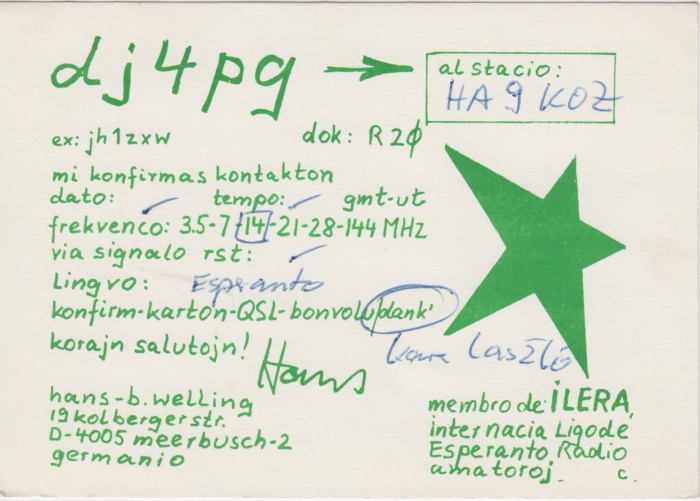 dj4pg
al stacio:
HA9KOZ
ex: jh1zxw
dok: R 2Ø
mi konfirmas kontakton
dato: tempo: gmt-ut
frekvenco: 3.5-7-14-21-28-144 MHz
via signalo rst:
Lingvo: Esperanto
konfirm-karton-QSL-bonvolu/dank'
László
korajn salutojn!
Hans
hans-b.welling
19 kolbergerstr.
D-4005 meerbusch-2
germanio
membro de ILERA,
internacia Ligo de
Esperanto Radio
amatoroj. c.